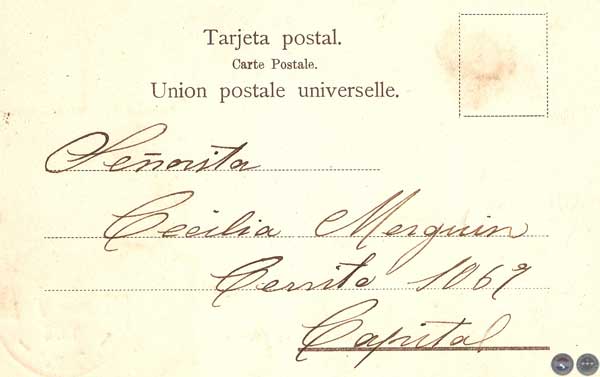 Tarjeta postal.
Carte Postale.
Union postale universelle.
Señorita
Cecilia Merguin
Cerrito 1069
Capital